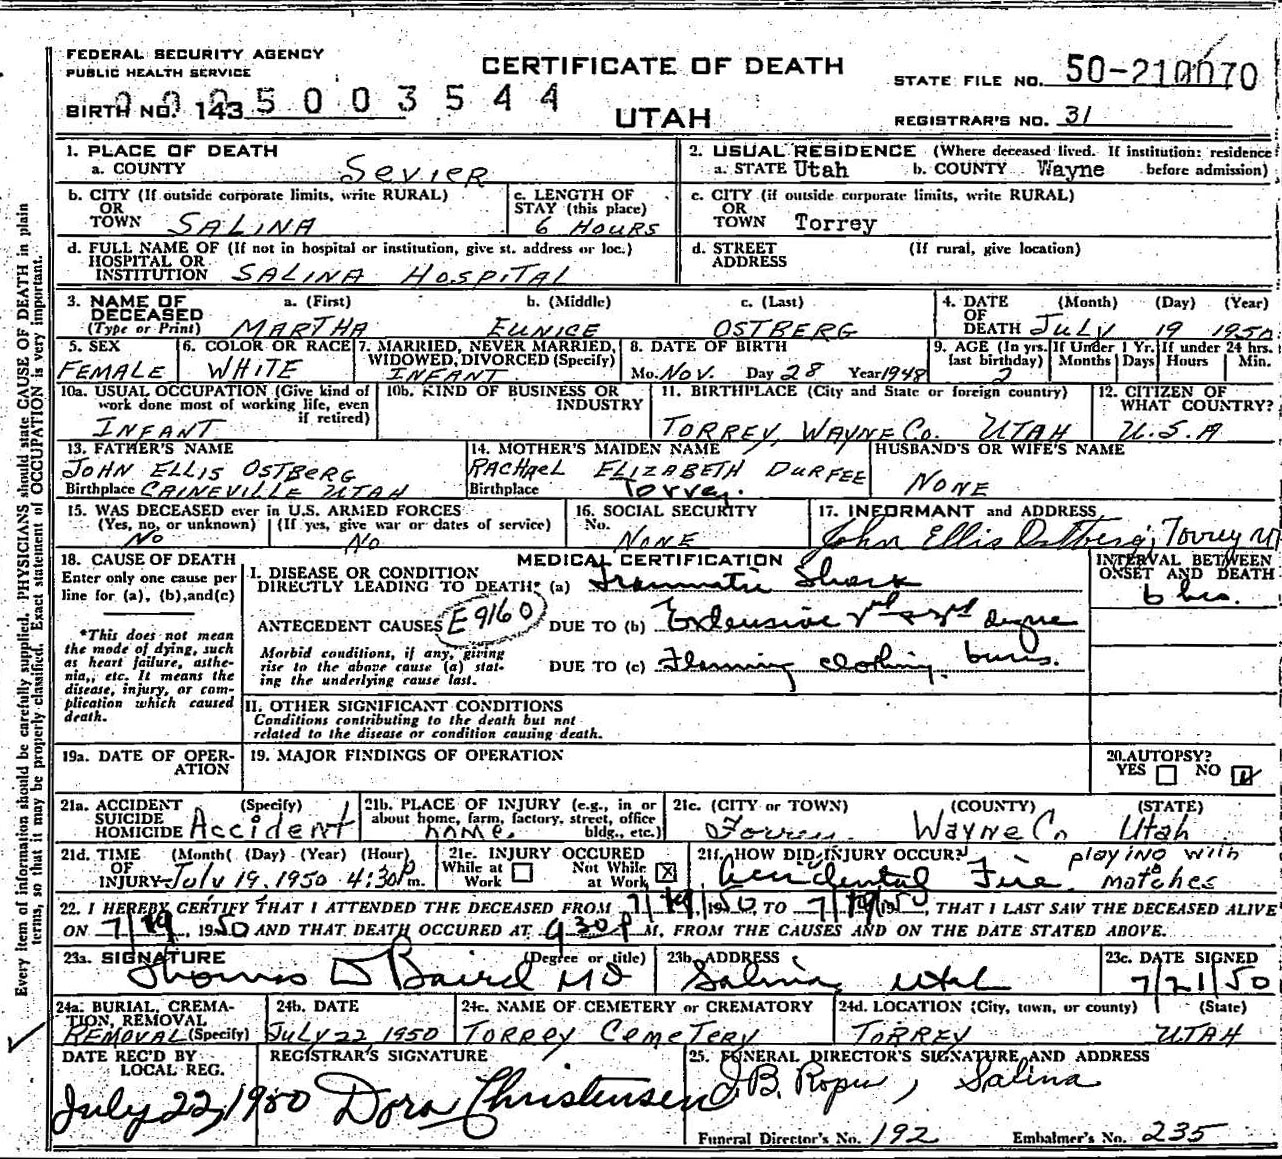 FEDERAL SECURITY AGENCY
PUBLIC HEALTH SERVICE
CERTIFICATE OF DEATH
STATE FILE NO. 50-210070
BIRTH NO. 143 0005003544
UTAH
REGISTRAR'S NO. 31
1. PLACE OF DEATH
a. COUNTY Sevier
2. USUAL RESIDENCE (Where deceased lived. If institution: residence before admission)
a. STATE Utah b. COUNTY Wayne
b. CITY (If outside corporate limits, write RURAL) OR TOWN SALINA
c. LENGTH OF STAY (this place) 6 HOURS
c. CITY (if outside corporate limits, write RURAL) OR TOWN Torrey
d. FULL NAME OF (If not in hospital or institution, give st. address or loc.) HOSPITAL OR INSTITUTION SALINA HOSPITAL
d. STREET ADDRESS (If rural, give location)
3. NAME OF DECEASED (Type or Print)
a. (First) MARTHA b. (Middle) EUNICE c. (Last) OSTBERG
4. DATE OF DEATH (Month) (Day) (Year) July 19 1950
5. SEX FEMALE
6. COLOR OR RACE WHITE
7. MARRIED, NEVER MARRIED, WIDOWED, DIVORCED (Specify) INFANT
8. DATE OF BIRTH Mo. Nov. Day 28 Year 1948
9. AGE (In yrs. last birthday) 2 If Under 1 Yr. Months Days If under 24 hrs. Hours Min.
10a. USUAL OCCUPATION (Give kind of work done most of working life, even if retired) INFANT
10b. KIND OF BUSINESS OR INDUSTRY
11. BIRTHPLACE (City and State or foreign country) TORREY, WAYNE Co. UTAH
12. CITIZEN OF WHAT COUNTRY? U.S.A
13. FATHER'S NAME JOHN ELLIS OSTBERG
Birthplace CAINEVILLE UTAH
14. MOTHER'S MAIDEN NAME RACHAEL ELIZABETH DURFEE
Birthplace Torrey.
HUSBAND'S OR WIFE'S NAME NONE
15. WAS DECEASED ever in U.S. ARMED FORCES
(Yes, no, or unknown) No (If yes, give war or dates of service) No
16. SOCIAL SECURITY No. NONE
17. INFORMANT and ADDRESS John Ellis Ostberg, Torrey Ut
18. CAUSE OF DEATH
Enter only one cause per line for (a), (b), and (c)
*This does not mean the mode of dying, such as heart failure, asthenia,, etc. It means the disease, injury, or complication which caused death.
MEDICAL CERTIFICATION
INTERVAL BETWEEN ONSET AND DEATH
I. DISEASE OR CONDITION DIRECTLY LEADING TO DEATH* (a) Traumatic Shock 6 hrs.
ANTECEDENT CAUSES E9160 DUE TO (b) Extensive 2nd & 3rd degree
Morbid conditions, if any, giving rise to the above cause (a) stating the underlying cause last.
DUE TO (c) Flaming clothing. burns.
II. OTHER SIGNIFICANT CONDITIONS
Conditions contributing to the death but not related to the disease or condition causing death.
19a. DATE OF OPERATION
19. MAJOR FINDINGS OF OPERATION
20. AUTOPSY?
YES NO
21a. ACCIDENT SUICIDE HOMICIDE (Specify) Accident
21b. PLACE OF INJURY (e.g., in or about home, farm, factory, street, office bldg., etc.) home.
21c. (CITY or TOWN) (COUNTY) (STATE)
Torrey. Wayne Co Utah
21d. TIME OF INJURY (Month) (Day) (Year) (Hour) July 19, 1950 4:30 P m.
21e. INJURY OCCURED
While at Work Not While at Work X
21f. HOW DID INJURY OCCUR?
Accidental Fire. playing with matches
22. I HEREBY CERTIFY THAT I ATTENDED THE DECEASED FROM 7/19, 1950, TO 7/19, 1950, THAT I LAST SAW THE DECEASED ALIVE
ON 7/19, 1950 AND THAT DEATH OCCURED AT 930 P M, FROM THE CAUSES AND ON THE DATE STATED ABOVE.
23a. SIGNATURE (Degree or title) Thomas D Baird MD
23b. ADDRESS Salina, Utah
23c. DATE SIGNED 7/21/50
24a. BURIAL, CREMATION, REMOVAL (Specify) REMOVAL
24b. DATE July 22, 1950
24c. NAME OF CEMETERY or CREMATORY TORREY CEMETERY
24d. LOCATION (City, town, or county) (State) TORREY UTAH
DATE REC'D BY LOCAL REG. July 22, 1950
REGISTRAR'S SIGNATURE Dora Christensen
25. FUNERAL DIRECTOR'S SIGNATURE AND ADDRESS
Salina
Funeral Director's No. 192 Embalmer's No. 235
Every item of information should be carefully supplied. PHYSICIANS should state CAUSE OF DEATH in plain
terms, so that it may be properly classified. Exact statement of OCCUPATION is very important.